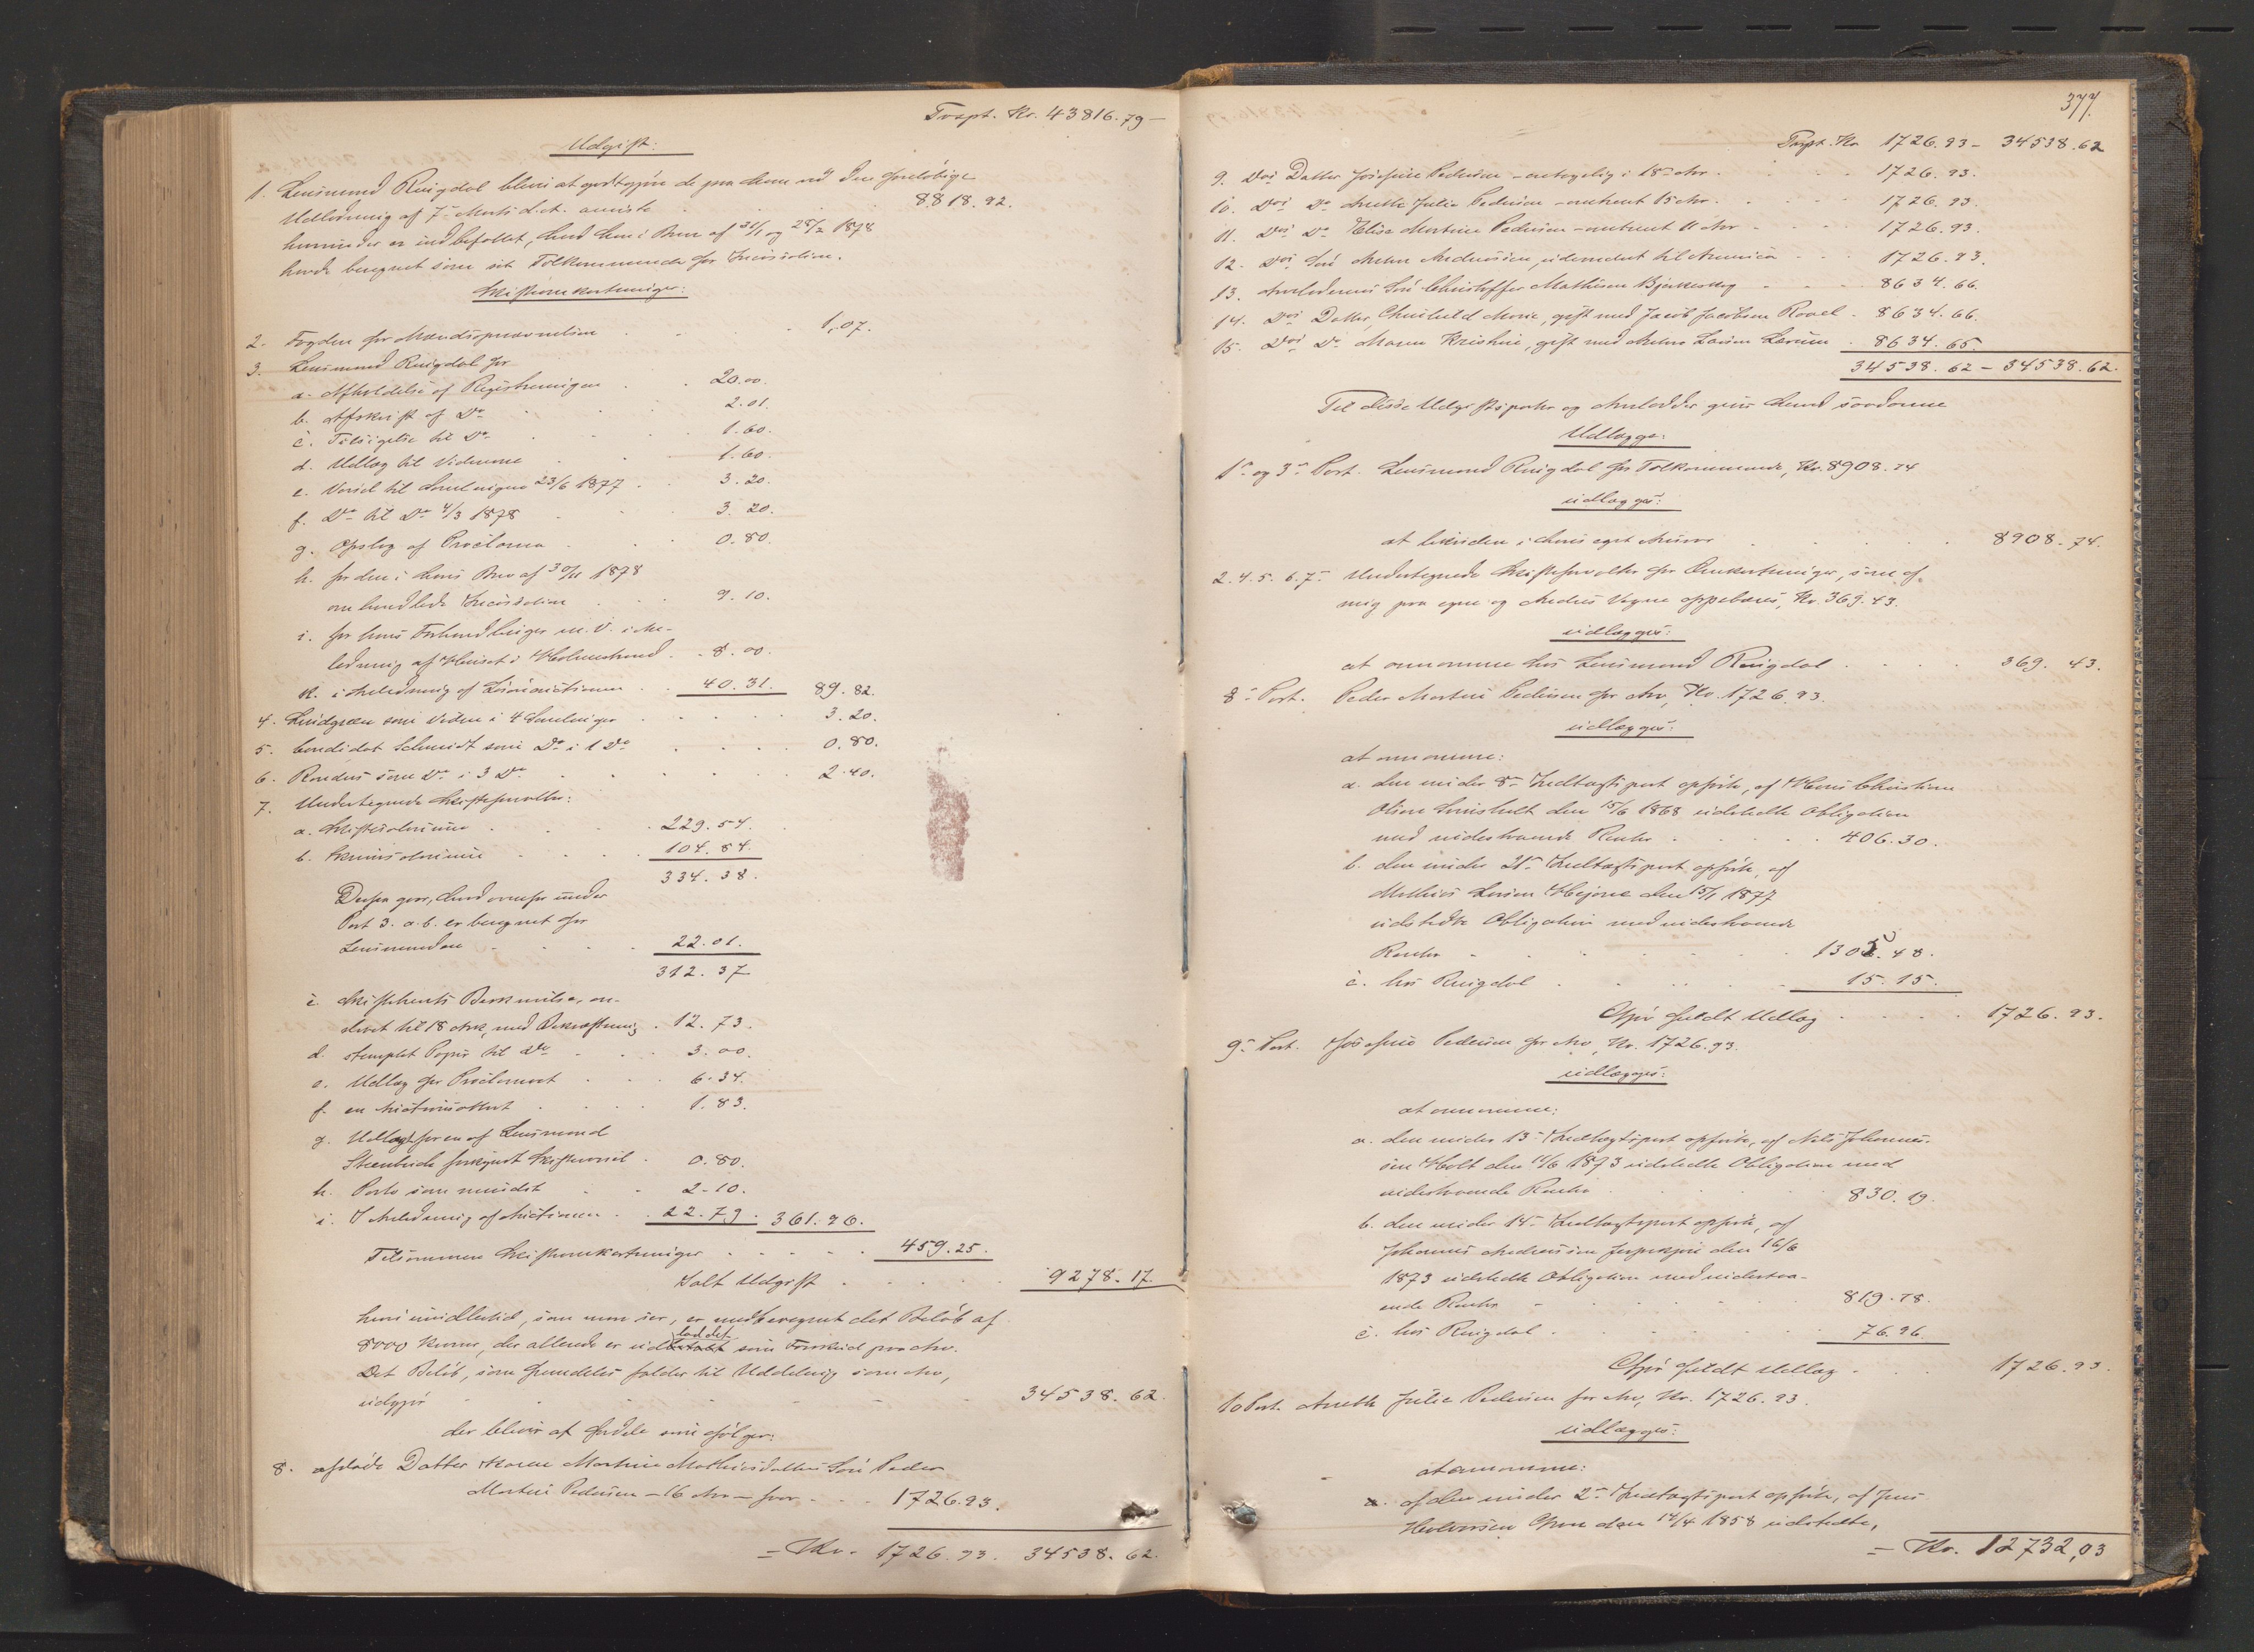 Trspt. Kr. 43816.79 —
Udgift:
1. Lensmand Ruigdal bliver at godtgjøre de paa ham ved den foreløbige
Udlodning af 7de Marts d. A. anviste . . 8818.92.
herunder er indbefattet, hvad han i Brev af 31/1 og 28/2 1878
havde beregnet som sit Tilkommende for Incassation.
Skifteomkostninger:
2. Fogden for Mandsopnævnelsen . . . 1,07.
3. Lensmand Ruigdal for
a. Afholdelse af Registreringen . . 20.00.
b. Afskrift af Do . . . 2.01.
c. Tilsigelse til Do . . . 1.60.
d. Udlæg til Vidnerne . . 1.60.
e. Varsel til Samlingen 23/6 1877 . . 3.20.
f. Do til Do 4/3 1878 . . 3.20.
g. Opslag af Proclama . . 0.80.
h. for den i hans Brev af 30/11 1878
omhandlede Incassation . . 9.10.
i. for hans Forhandlinger m. V. i An-
ledning af Huset i Holmestrand . . 8.00.
k. i Anledning af Løsøreauctionen . . 40.31. 89.82.
4. Lindgreen som Vidne i 4 Samlinger . . . 3.20.
5. Candidat Schmidt som Do i 1 Do . . . 0.80.
6. Randers som Do i 3 Do . . . 2.40.
7. Undertegnede Skifteforvalter:
a. Skiftesalarium . . . 229.54.
b. Skriversalarium . . . 104.84.
334.38.
Derfra gaar, hvad ovenfor under
Post 3. a. b. er beregnet for
Lensmanden . . . 22.01.
312.37
c. Skiftebrevets Beskrivelse, an-
slaaet til 18 Ark, med Bekræftning . 12.73.
d. stemplet Papir til Do . . . 3.00.
e. Udlæg for Proclamaet . . . 6.34.
f. en Auctionsattest . . . 1.83.
g. Udlagt for en af Lensmand
forkyndt Skiftevarsel . 0.80.
h. Porto som mindst . . 2.10.
i. I Anledning af Auctionen . . 22.79. 361.96.
Tilsammen Skifteomkostninger . . . 459.25.
Ialt Udgift . . . 9278.17.
hvori imidlertid, som man ser, er medberegnet det Beløb af
8000 Kroner, der allerede er udloddet som Forskud paa Arv.
Det Beløb, som fremdeles falder til Uddeling som Arv,
udgjør . . . 34538.62
der bliver at fordele som følger:
8. afdøde Datter Maren Martine Mathiasdatters Søn Peder
Martin Pedersen — 16 Aar — faar . . . 1726.93.
= Kr. 1726.93. 34538.62.
377.
Trspt. Kr. 1726.93 — 34538.62
9. Dos Datter Josefine Pedersen — antagelig i 18de Aar . . . 1726.93.
10. Dos Do Anette Julie Pedersen — omtrent 15 Aar . . . 1726.93.
11. Dos Do Elise Martine Pedersen — omtrent 11 Aar . . . 1726.93.
12. Dos Søn Anton Andreassen, udvandret til Amerika . . . 1726.93.
13. Arveladerens Søn Christoffer Mathisen Bjerkeskog . . . 8634.66.
14. Dos Datter, Marie, gift med Jacob Jacobsen . 8634.66.
15. Dos Do Maren Kristine, gift med Anton Larsen . 8634.65.
34538.62 — 34538.62.
Til disse Udgiftsposter og Arvelodder gives herved saadanne
Udlægge:
1ste og 3de Post. Lensmand Ruigdal for Tilkommende, Kr. 8908.74
udlægges:
at beholde i hans eget Ansvar . . . 8908.74.
2. 4. 5. 6. 7de Undertegnede Skifteforvalter for Omkostninger, som af
mig paa egne og Andres Vegne oppebæres, Kr. 369.43.
udlægges:
at annamme hos Lensmand Ruigdal . . . 369.43.
8de Post. Peder Martin Pedersen for Arv, Kr. 1726.93.
udlægges:
at annamme:
a. den under 8de Indtægtspost opførte, af Hans Christian
Olsen den 15/6 1868 udstedte Obligation
med vedstaaende Renter . . . 406.30.
b. den under 21de Indtægtspost opførte, af
Mathias Larsen den 15/1 1877
udstedte Obligation med vedstaaende
Renter . . . 1305.48.
c. hos Ruigdal . . . 15.15.
Gjør fuldt Udlæg . . . 1726.93.
9de Post. Josefine Pedersen for Arv, Kr. 1726.93.
udlægges:
at annamme:
a. den under 13de Indtægtspost opførte, af Nils Johannes-
sen Holt den 11/6 1873 udstedte Obligation med
vedstaaende Renter . . . 830.19.
b. den under 14de Indtægtspost opførte, af
Johannes Andreassen den 16/6
1873 udstedte Obligation med vedstaa-
ende Renter . . . 819.78.
c. hos Ruigdal . . . 76.96.
Gjør fuldt Udlæg . . . 1726.93.
10 Post. Anette Julie Pedersen for Arv, Kr. 1726.93.
udlægges:
at annamme:
a. af den under 2den Indtægtspost opførte, af Jens
Halvorsen den 14/4 1858 udstedte,
= Kr. 12732,03